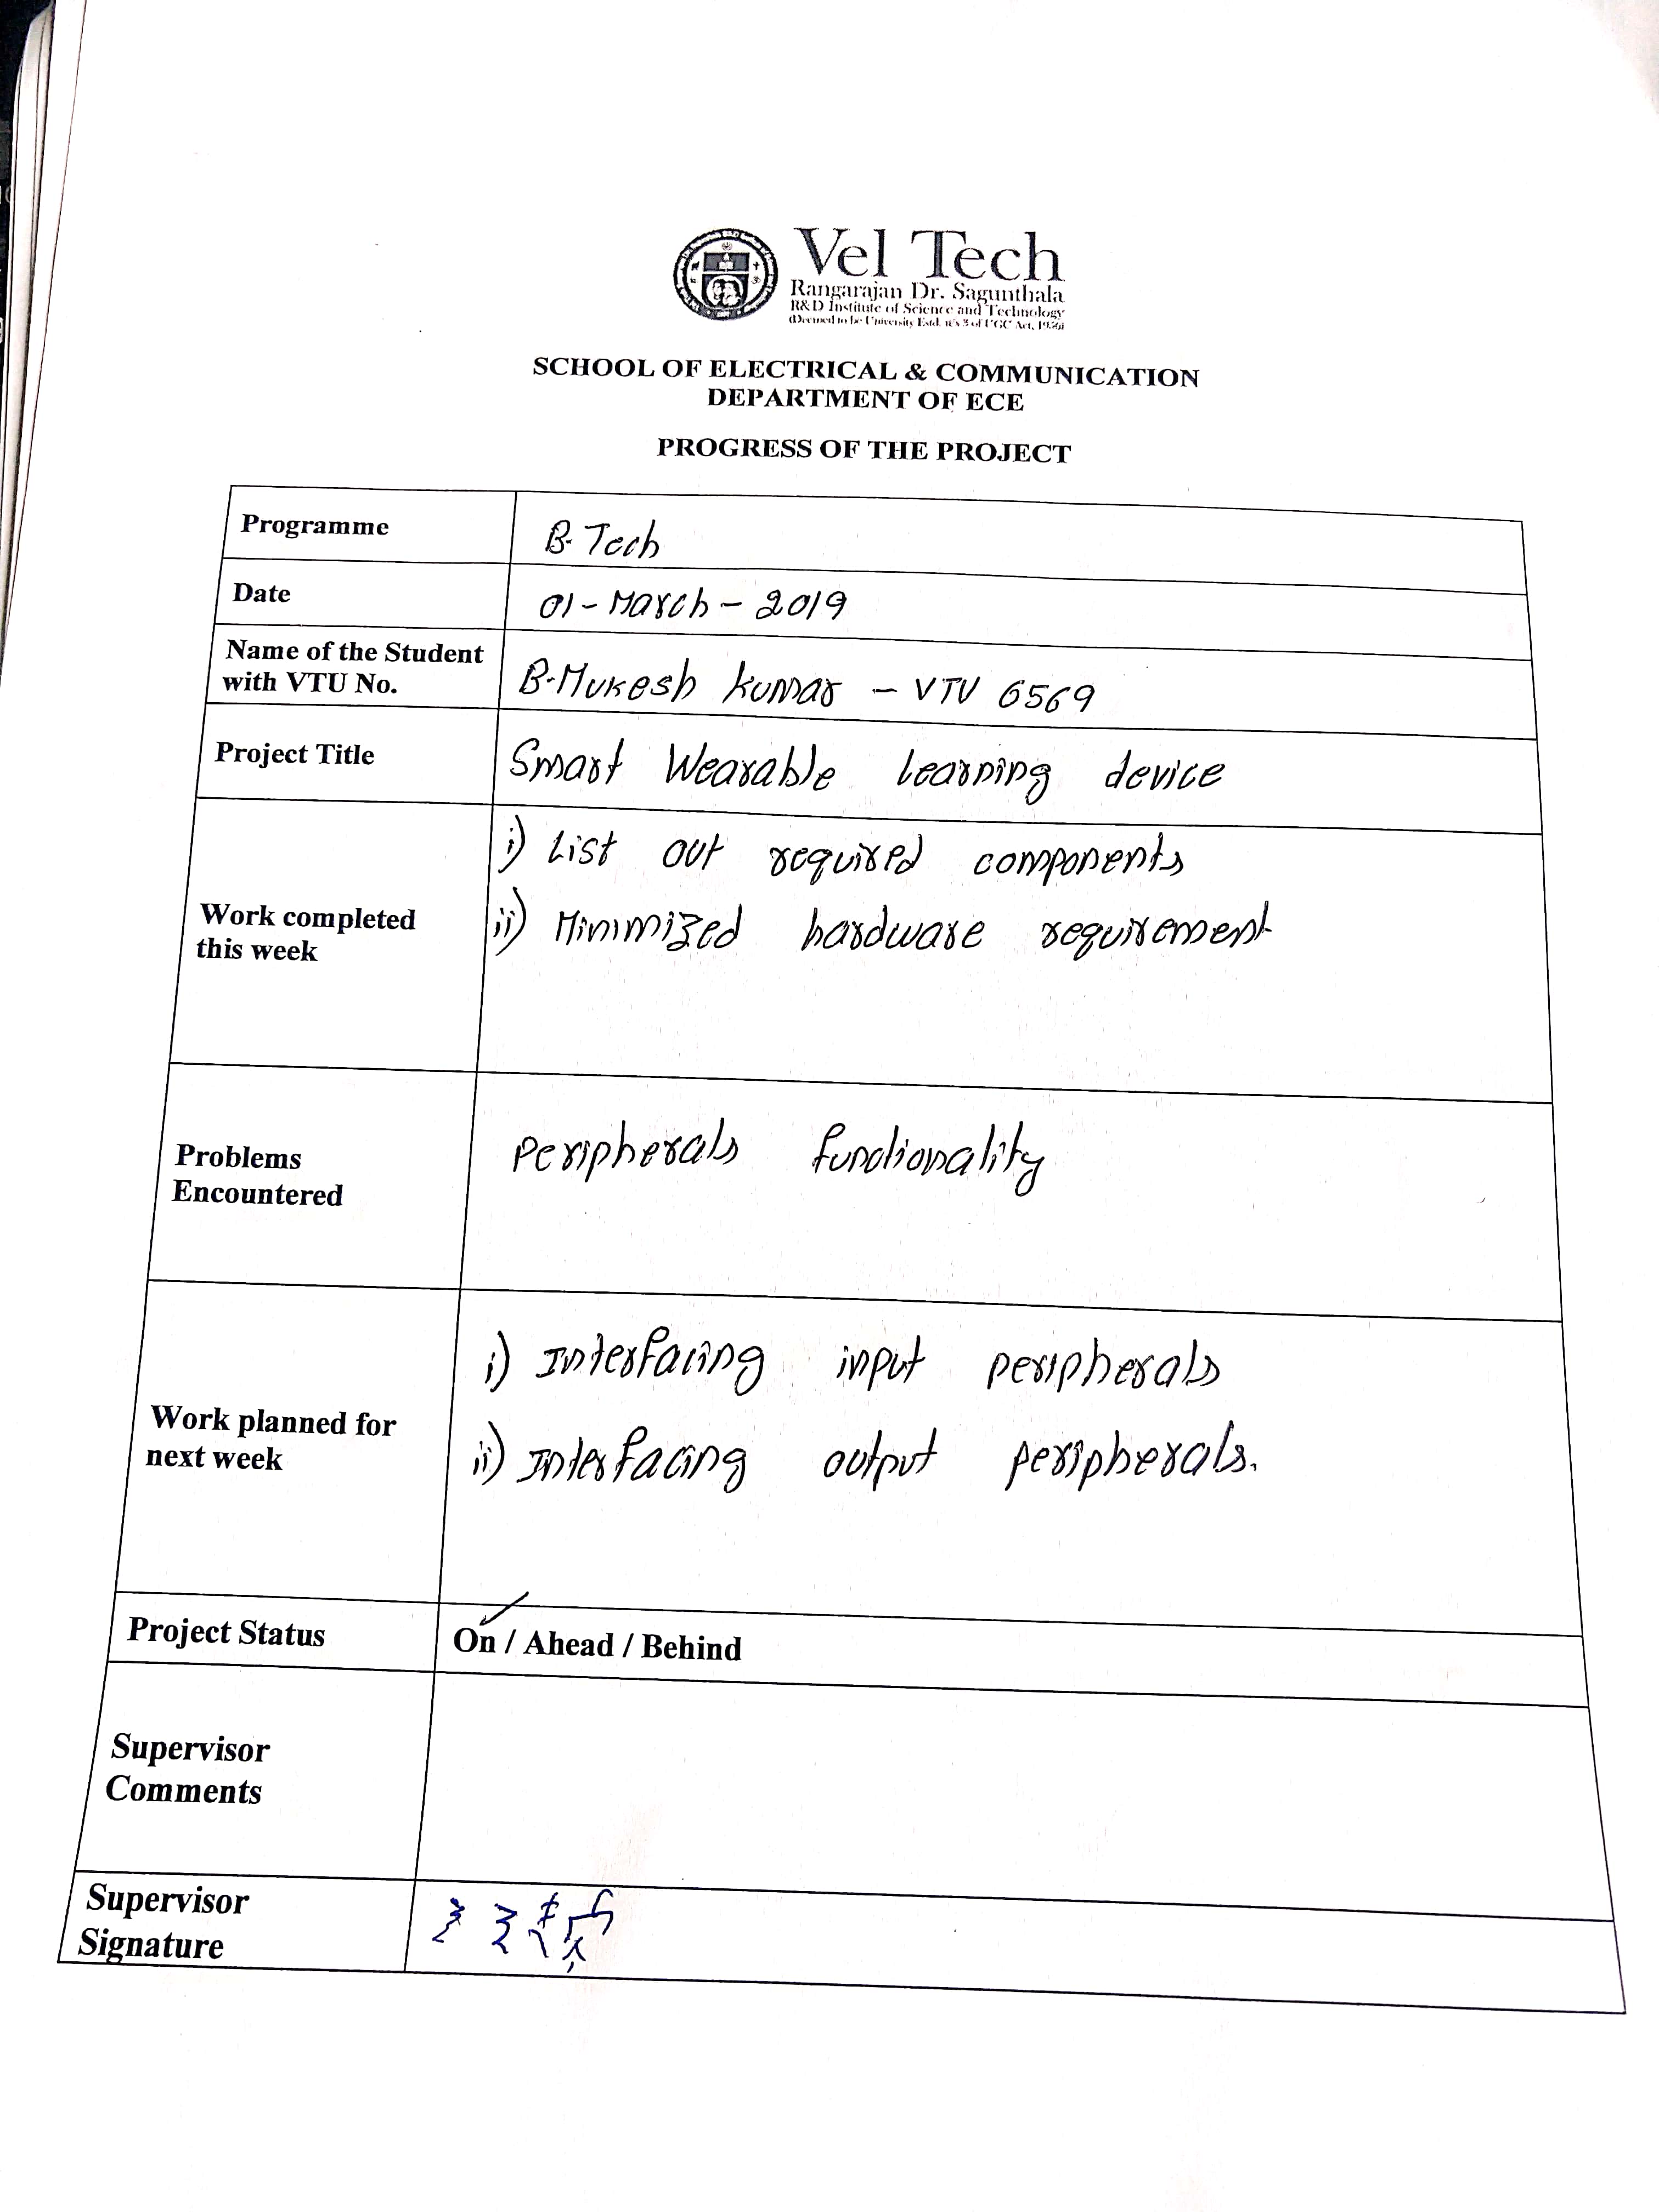 Vel Tech
Rangarajan Dr. Sagunthala
R&D Institute of Science and Technology
(Deemed to be University Estd. u/s 3 of UGC Act, 1956)
SCHOOL OF ELECTRICAL & COMMUNICATION
DEPARTMENT OF ECE
PROGRESS OF THE PROJECT
Programme
B.Tech
Date
01-March-2019
Name of the Student
with VTU No.
B.Mukesh kumar - VTU 6569
Project Title
Smart Wearable learning device
Work completed
this week
i) List out required components
ii) Minimized hardware requirement
Problems
Encountered
Peripherals functionality
Work planned for
next week
i) Interfacing input peripherals
ii) Interfacing output peripherals.
Project Status
On / Ahead / Behind
Supervisor
Comments
Supervisor
Signature